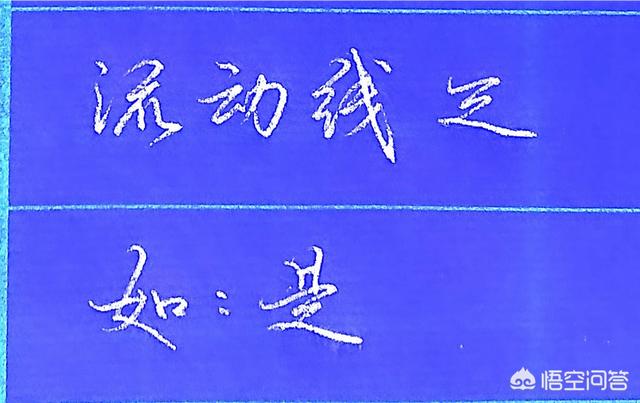 流动线
如:是
悟空问答